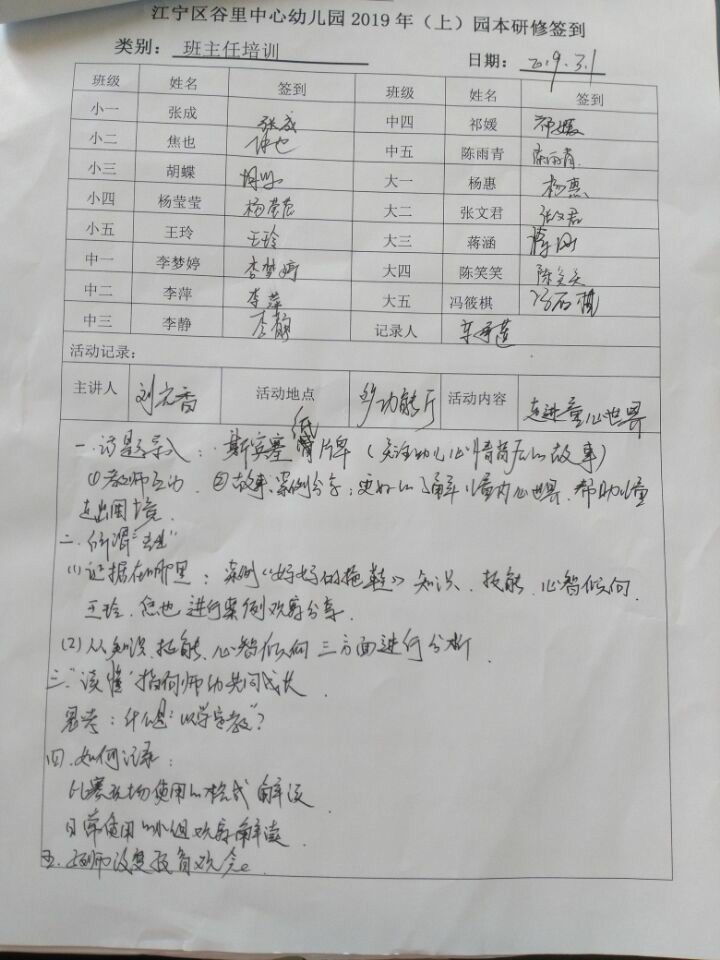 江宁区谷里中心幼儿园2019年（上）园本研修签到
类别：班主任培训 日期：2019.3.1
班级 姓名 签到 班级 姓名 签到
小一 张成 张成 中四 祁媛 祁媛
小二 焦也 焦也 中五 陈雨青 陈雨青
小三 胡蝶 胡蝶 大一 杨惠 杨惠
小四 杨莹莹 杨莹莹 大二 张文君 张文君
小五 王玲 王玲 大三 蒋涵
中一 李梦婷 李梦婷 大四 陈笑笑 陈笑笑
中二 李萍 李萍 大五 冯筱棋
中三 李静 李静 记录人
活动记录：
主讲人 活动地点 多功能厅 活动内容 走进童心世界
一、话题导入：斯宾塞纸片牌（关注幼儿心情背后的故事）
①教师互动 ②故事、案例分享：更好的了解儿童内心世界，帮助儿童
走出困境.
二、所谓
(1)证据在哪里：案例《妈妈的拖鞋》知识、技能、心智倾向.
王玲、焦也进行案例观察分享.
(2)从知识、技能、心智倾向三方面进行分析.
三."读懂"指向师幼共同成长.
思考：什么是"以学定教"？
四.如何记录：
比赛现场使用的格式解读
日常使用的小组观察解读
五.教师改变教育观念。